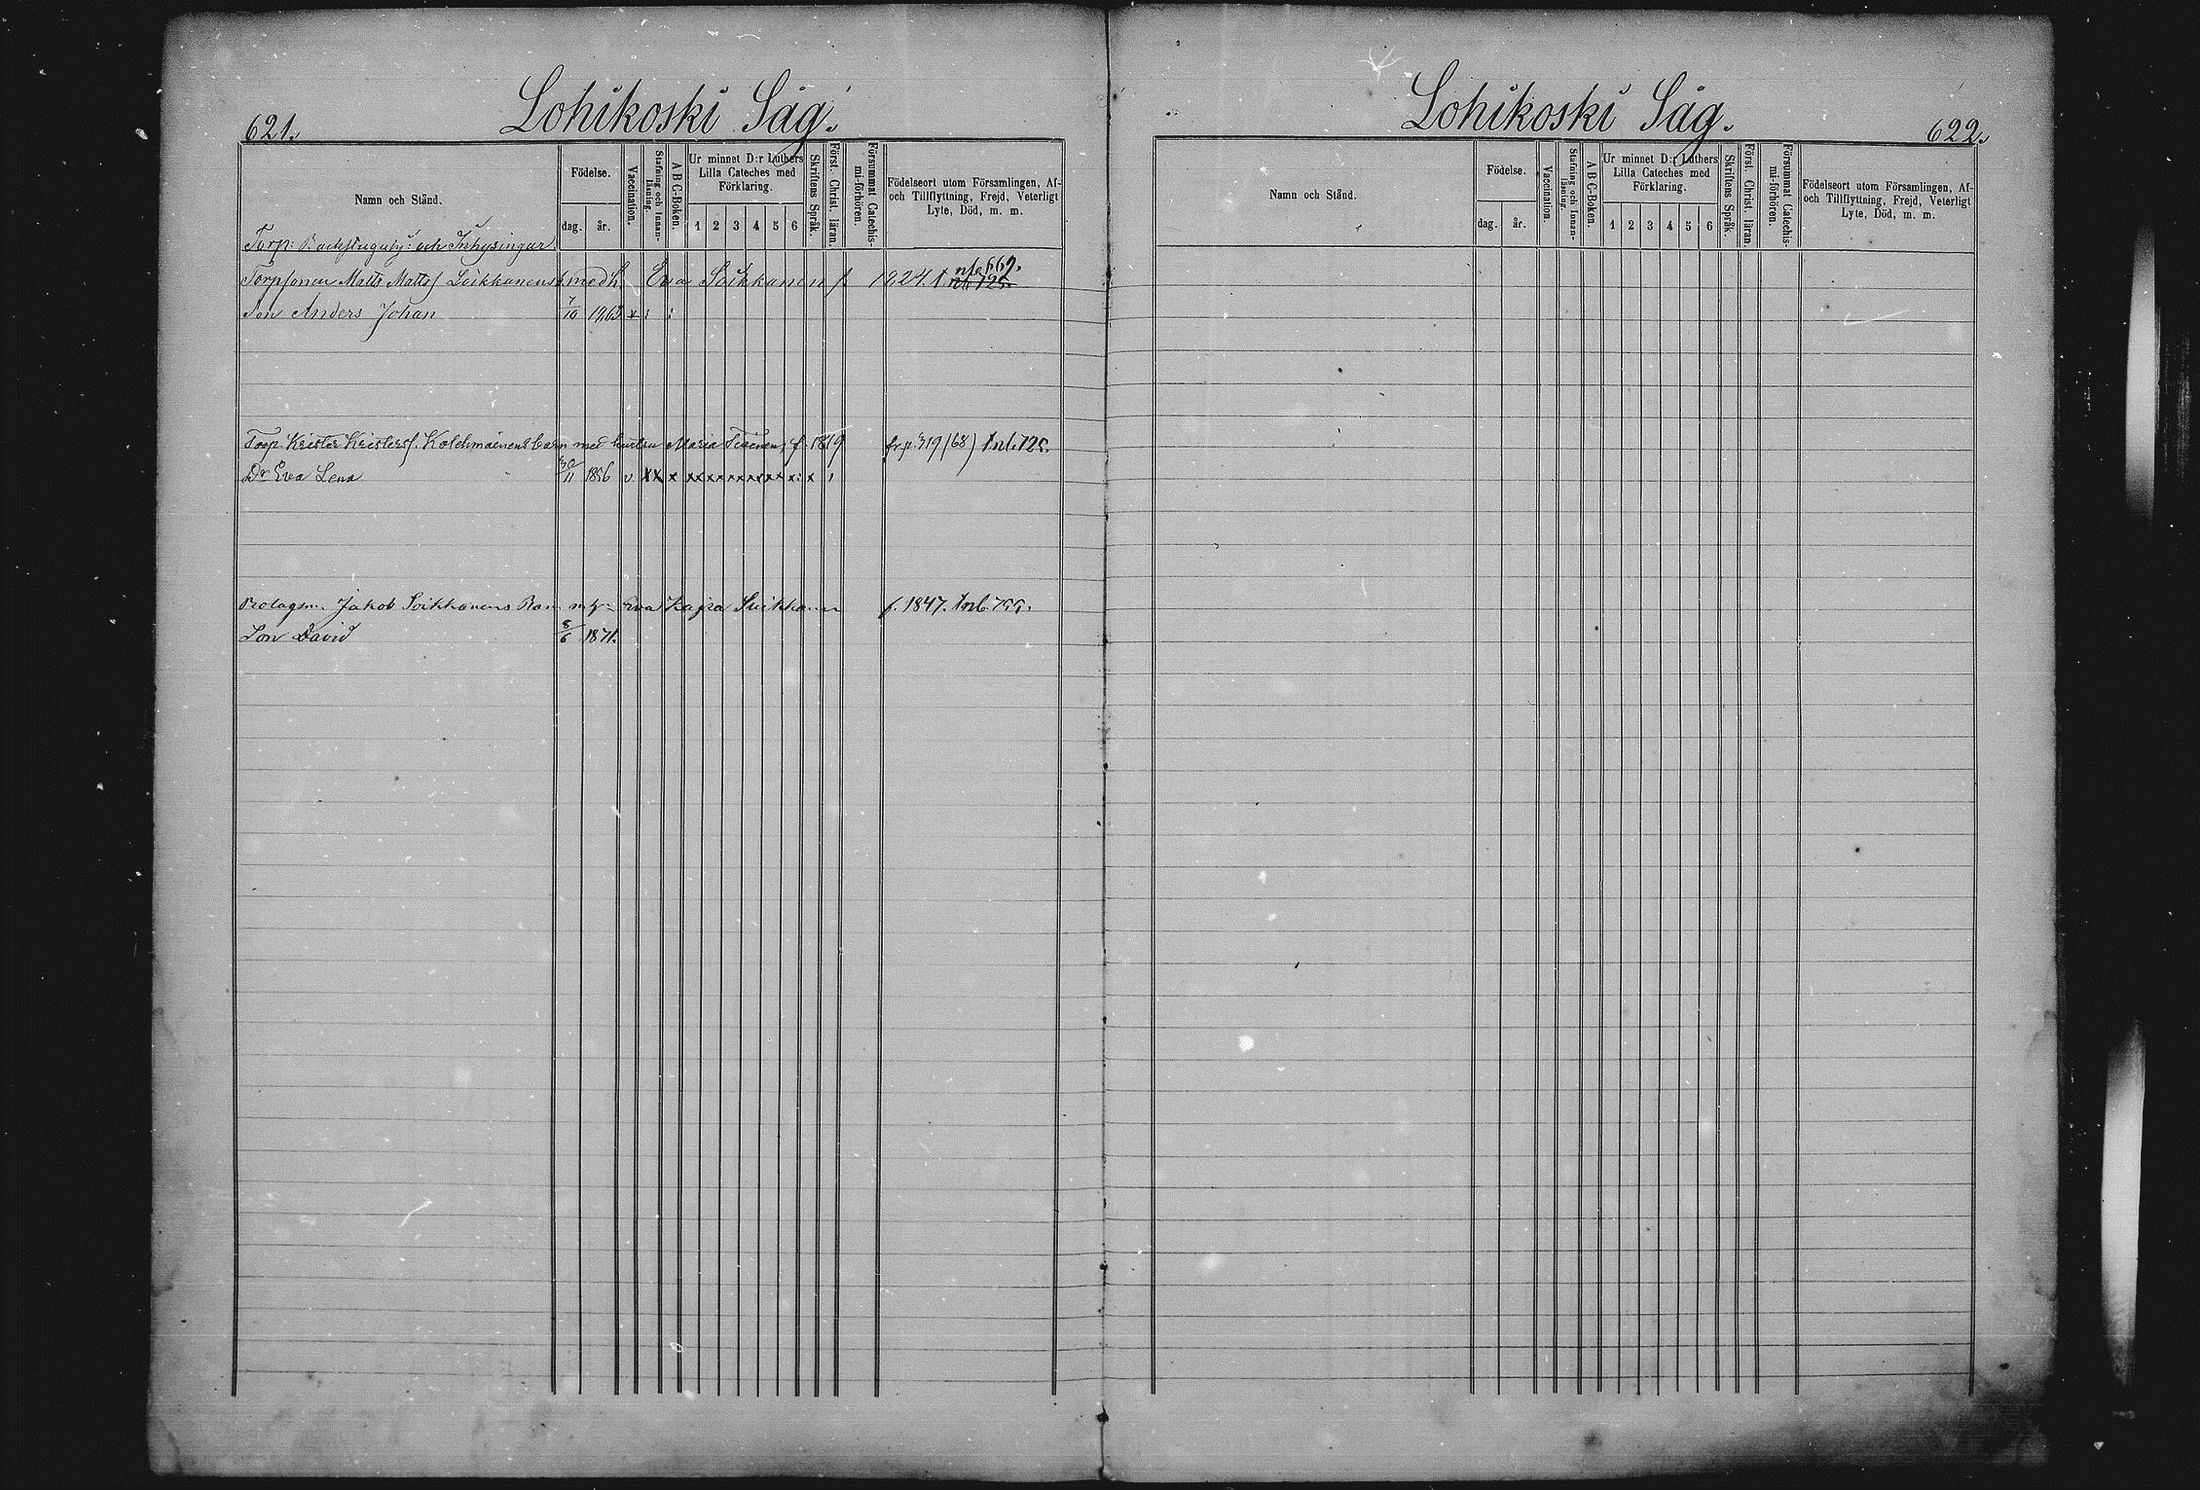 621.
Lohikoski Såg.
Namn och Stånd.
Födelse.
dag.
år.
Vaccination.
Stafning och Innan-
läsning.
A B C-Boken.
Ur minnet D:r Luthers
Lilla Cateches med
Förklaring.
1 2 3 4 5 6
Skriftens Språk.
Först. Christ. läran.
Försummat Catechis-
mi-förhören.
Födelseort utom Församlingen, Af-
och Tillflyttning, Frejd, Veterligt
Lyte, Död, m. m.
Torp: Backstugusj: och Inhysingar
Torpsonen Matts Mattsf Loikkanens med h. Eva Soikkanen f. 1824.
662.
Son Anders Johan 7/10 1863
Torp. Krister Kristersf. Kolehmainens barn med hustru Maria f. 1819 fr. p. 319 (68)
Dr Eva Lena 30/11 1856 v
Jakob Soikkanens Barn Eva Kajsa Soikkanen f. 1847.
Son David 8/6 1871.
Lohikoski Såg.
622.
Namn och Stånd.
Födelse.
dag.
år.
Vaccination.
Stafning och Innan-
läsning.
A B C-Boken.
Ur minnet D:r Luthers
Lilla Cateches med
Förklaring.
1 2 3 4 5 6
Skriftens Språk.
Först. Christ. läran.
Försummat Catechis-
mi-förhören.
Födelseort utom Församlingen, Af-
och Tillflyttning, Frejd, Veterligt
Lyte, Död, m. m.